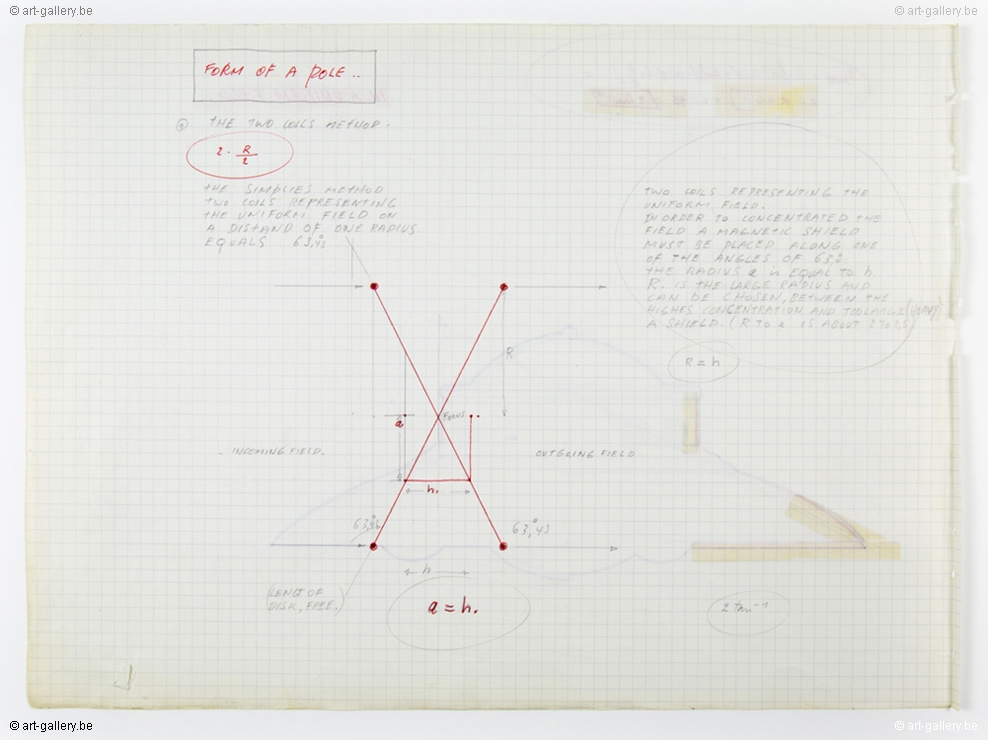 © art-gallery.be
© art-gallery.be
FORM OF A POLE..
THE TWO COILS METHOD.
2 . R
2
THE SIMPLIES METHOD
TWO COILS REPRESENTING
THE UNIFORM FIELD ON
A DISTAND OF ONE RADIUS
EQUALS 63,43°
TWO COILS REPRESENTING THE
UNIFORM FIELD.
IN ORDER TO CONCENTRATED THE
FIELD A MAGNETIC SHIELD
MUST BE PLACED ALONG ONE
OF THE ANGLES OF 63°
THE RADIUS a is EQUAL TO h.
R. IS THE LARGE RADIUS AND
CAN BE CHOSEN, BETWEEN THE
HIGHES CONCENTRATION AND TOO LARGE (HEAVY)
A SHIELD. (R TO a IS ABOUT 2 TO 2,5
R = h
R
a
FOCUS
INCOMING FIELD.
OUTGOING FIELD
h.
63,43°
63,43°
h
(LENGT OF
DISK, FREE.)
a = h.
2 tan⁻¹
© art-gallery.be
© art-gallery.be